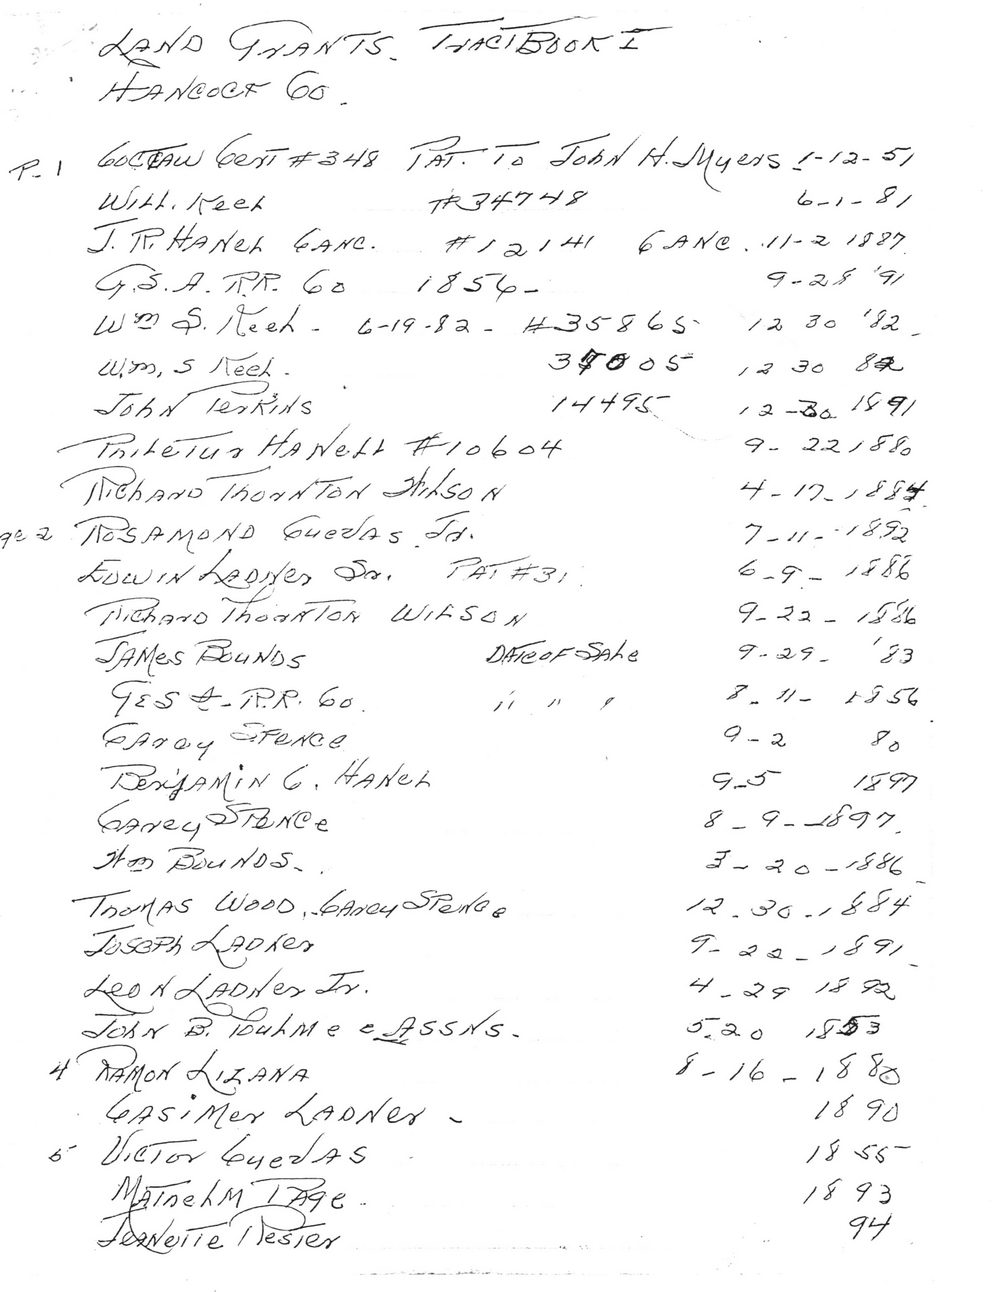 LAND GRANTS. TRACT BOOK I
HANCOCK CO.
P-1 COCTAW CERT # 348 PAT. TO JOHN H. Myers 1-12-51
WILL. Keel #34748 6-1-81
J. R. HANEL CANC. #12141 CANC. 11-2 1887
G.S.A. R.R. CO 1856- 9-28 '91
Wm S. Keel - 6-19-82 - #35865 12 30 '82
Wm, S Keel. 37005 12 30 82
JOHN PERKINS 14495 12-30 1891
PHILETUS HANELL #10604 9- 22 1880
RICHARD THORNTON WILSON 4-17-1884
ge 2 ROSAMOND CUEVAS Jr. 7-11-1892
EDWIN LADNER Sr. PAT #31 6-9-1886
RICHARD THORNTON WILSON 9-22-1886
JAMES BOUNDS DATE OF SALE 9-29- '83
G & S I- R.R. CO. " " " 8-11-1856
CAREY SPENCE 9-2 80
BENJAMIN C. HANEL 9-5 1897
CAREY SPENCE 8-9-1897
Wm BOUNDS. 3-20-1886
THOMAS WOOD, CAREY SPENCE 12-30-1884
JOSEPH LADNER 9-22-1891
LEON LADNER Jr. 4-29 1892
JOHN B. TOULME & ASSNS. 5.20 1853
4 RAMON LIZANA 8-16-1880
CASIMER LADNER - 1890
5 VICTOR CUEVAS 1855
PAGE. 1893
JEANETTE NESTER 94